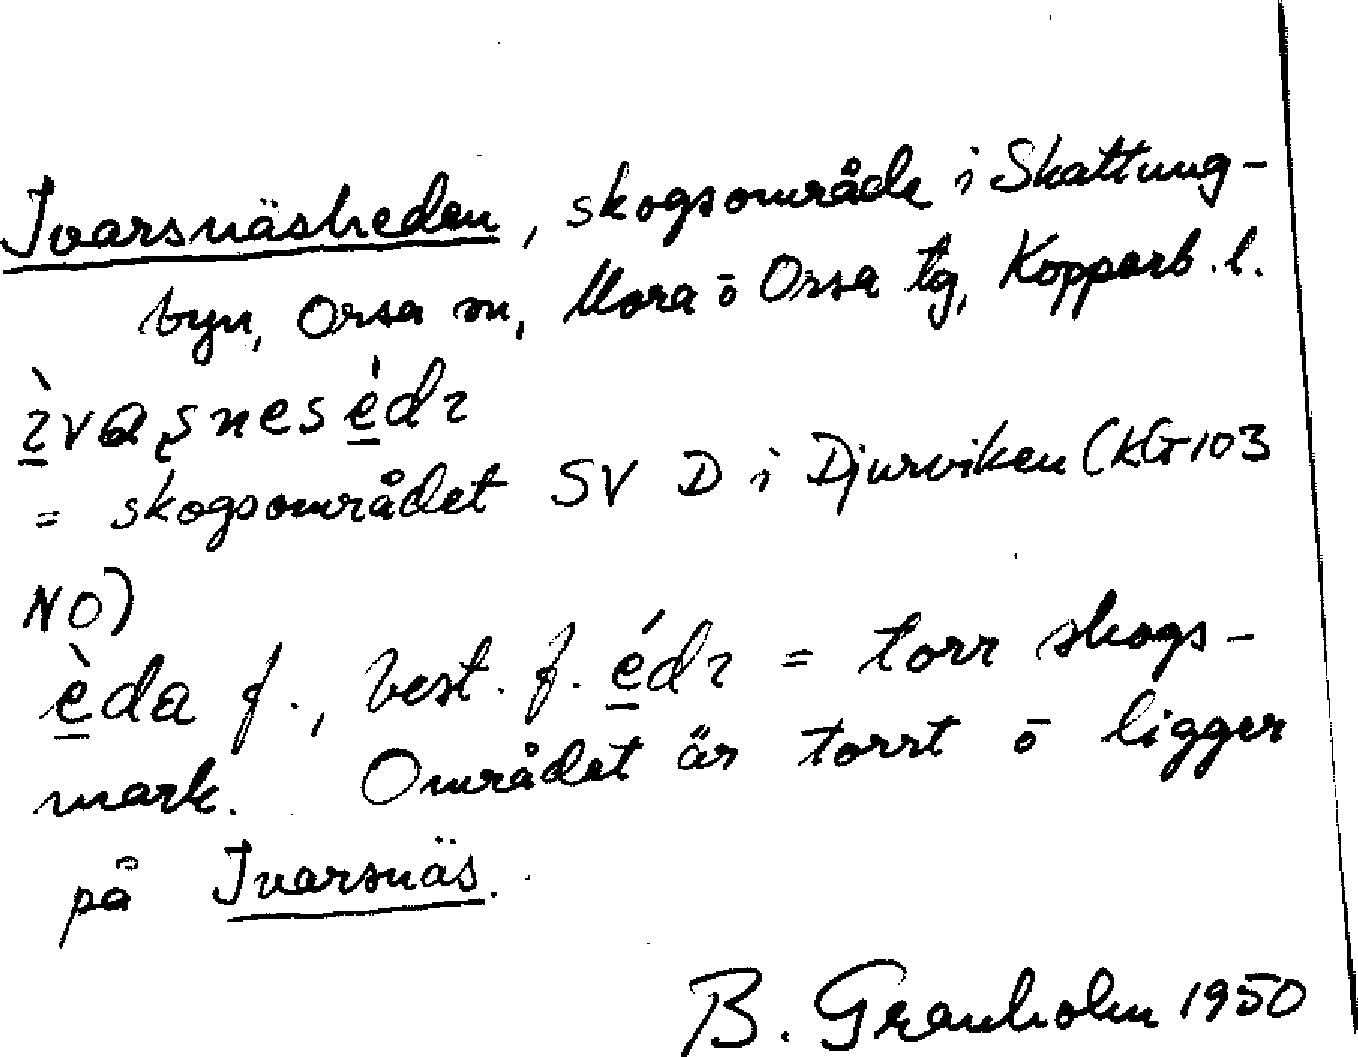 Ivarsnäsheden, skogsområde i Skattung-
byn, Orsa sn, Mora o Orsa tg, Kopparb. l.
ı̀vaʂnesédı
= skogsområdet SV D i Djurviken (kG 103
NO)
èda f., best. f. édı = torr skogs-
mark. Området är torrt o ligger
på Ivarsnäs.
B. Granholm 1950